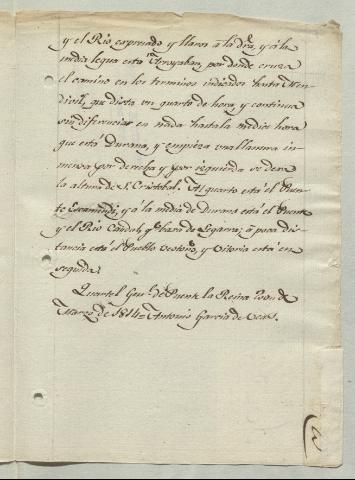 y el Rio expresado y llanos á la dra, y á la
media legua está Arroyabe, por donde cruza
el camino en los terminos indicados hasta Men-
divil, que dista un quarto de hora, y continua
sin diferenciar en nada hasta la media hora
que está Durana, y empieza una llanura in-
mensa por derecha y por izquierda se deva
la altura de Sn Cristobal. Al quarto está el Puen-
te Escamendi, y á la media de Durana está el Puente
y el Rio Caudal que baxa de Segarra; á poca dis-
tancia está el Pueblo vetoño, y Vitoria está en
seguida.
Quartel Genl. de Puente la Reina de
Marzo de 1814 = Antonio Garcia de